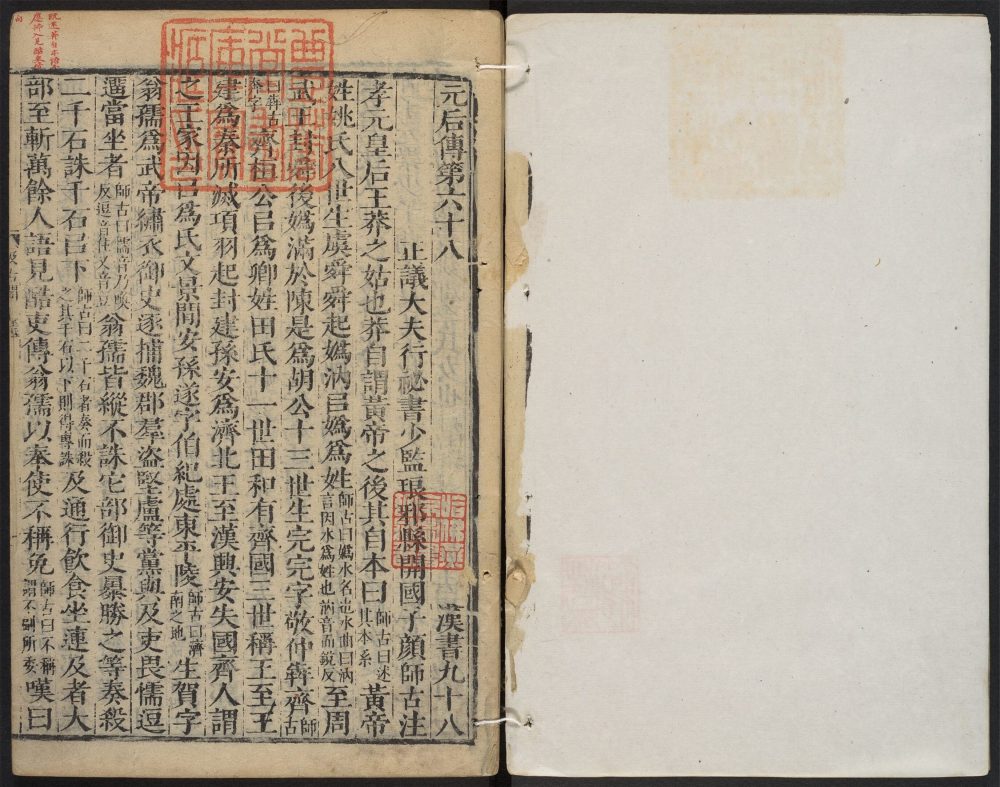 元后傳第六十八 漢書九十八
正議大夫行祕書少監琅邪縣開國子顏師古注
孝元皇后王莽之姑也莽自謂黃帝之後其自本曰師古曰述其本系黃帝
姓姚氏八世生虞舜舜起嬀汭㠯嬀爲姓師古曰嬀水名也水曲曰汭言因水爲姓也汭音而銳反至周
武王封舜後嬀滿於陳是爲胡公十三世生完完字敬仲犇齊師古
曰犇古奔字齊桓公㠯爲卿姓田氏十一世田和有齊國三世稱王至王
建爲秦所滅項羽起封建孫安爲濟北王至漢興安失國齊人謂
之王家因㠯爲氏文景間安孫遂字伯紀處東平陵師古曰濟南之地生賀字
翁孺爲武帝繡衣御史逐捕魏郡羣盜堅盧等黨與及吏畏懦逗
遛當坐者師古曰懦音乃喚反逗音住又音豆翁孺皆縱不誅它部御史暴勝之等奏殺
二千石誅千石㠯下師古曰二千石者奏而殺之其千石以下則得專誅及通行飲食坐連及者大
部至斬萬餘人語見酷吏傳翁孺以奉使不稱免師古曰不稱謂不副所委嘆曰